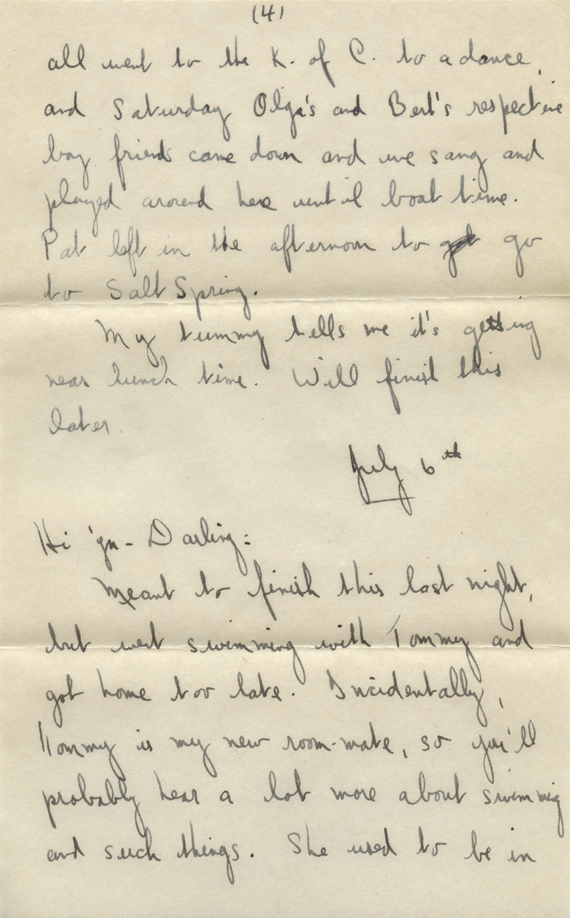 (4)
all went to the K. of C. to a dance,
and Saturday Olga's and Bert's respective
boy friends came down and we sang and
played around here until boat time.
Pat left in the afternoon to get go
to Salt Spring.
My tummy tells me it's getting
near lunch time. Will finish this
later.
July 6th
Hi 'yu - Darling:
Meant to finish this last night,
but went swimming with Tommy and
got home too late. Incidentally,
Tommy is my new room-mate, so you'll
probably hear a lot more about swimming
and such things. She used to be in